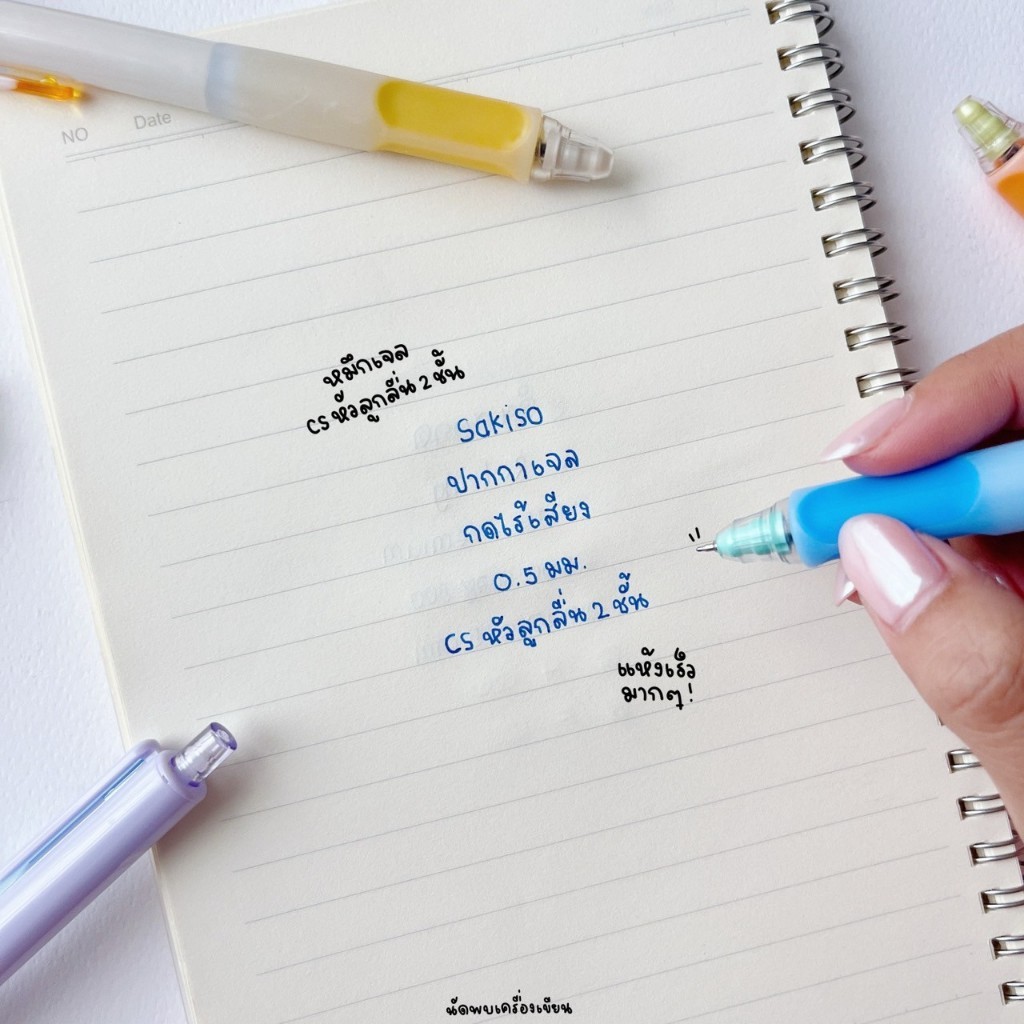 NO
Date
หมึกเจล
CS หัวลูกลื่น 2 ชั้น
Sakiso
ปากกาเจล
กดไร้เสียง
0.5 มม.
CS หัวลูกลื่น 2 ชั้น
แห้งเร็ว
มากๆ!
นัดพบเครื่องเขียน